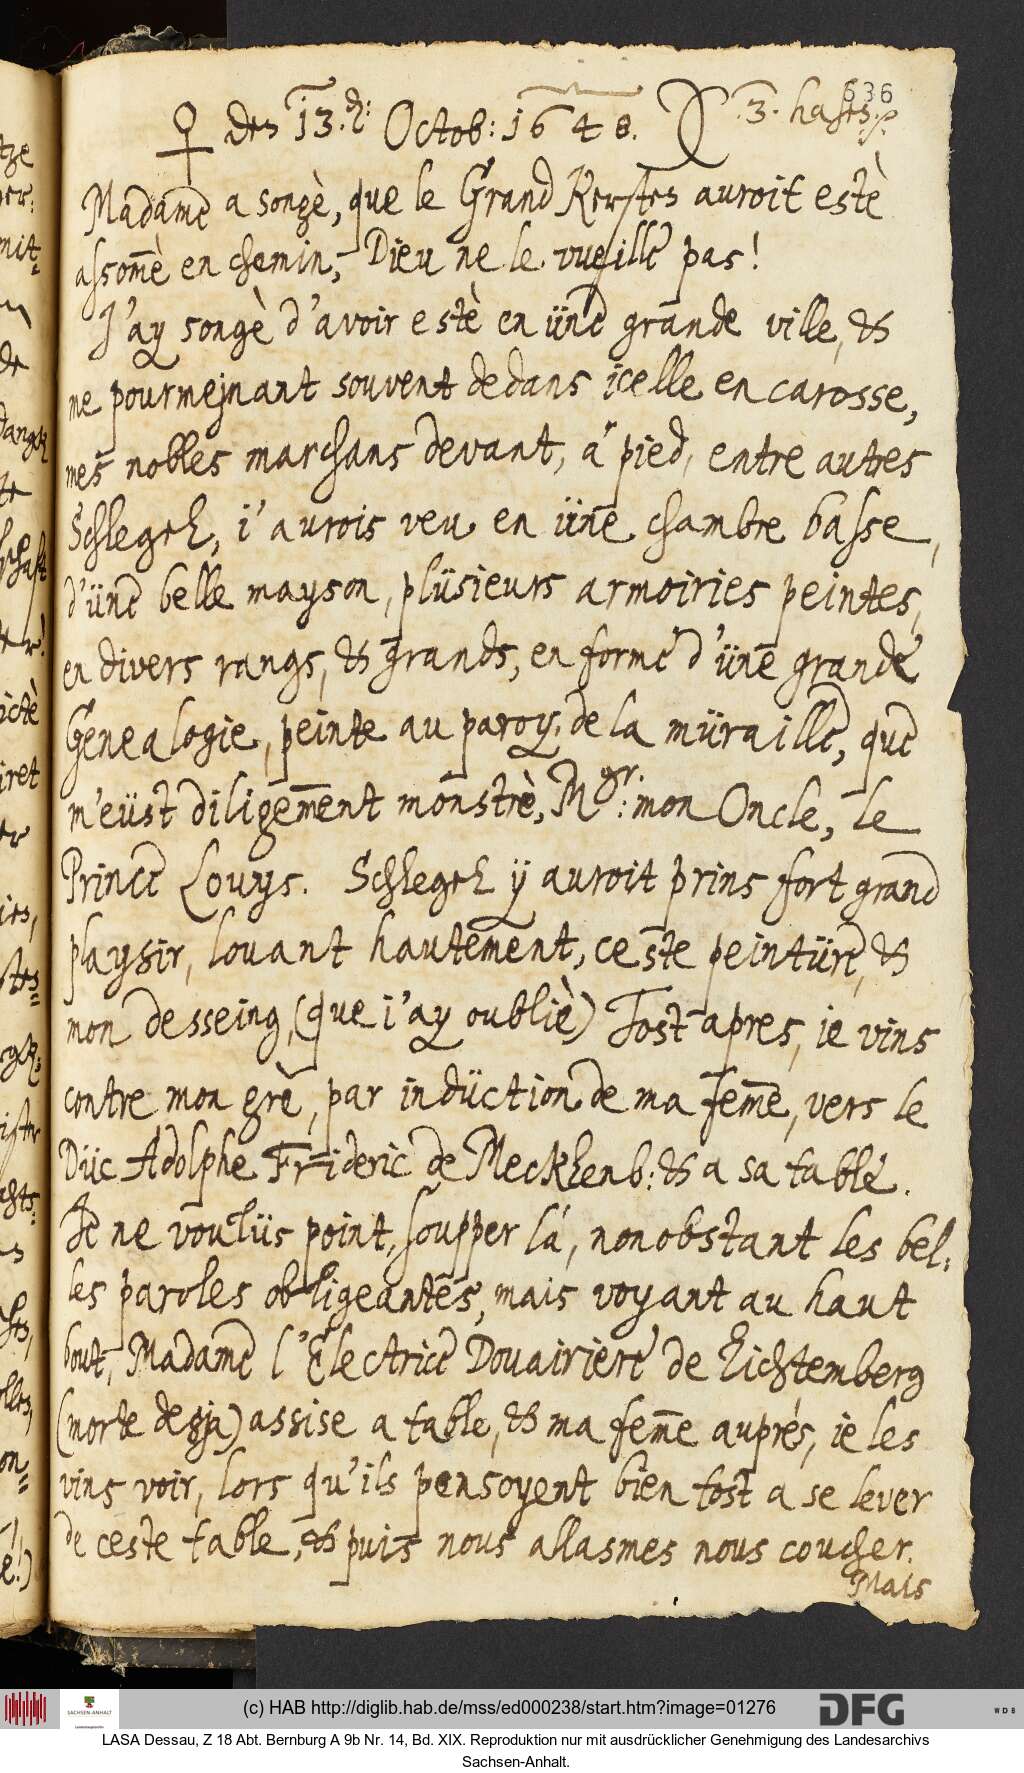 636
♀ den 13.d: Octob: 1648. 3. hasen
Madame a songè, que le Grand Kersten auroit estè
assom̅è en chemin, Dieu ne le vueille pas!
J'ay songè d'avoir estè en üne grande ville, &
me pourmejnant souvent dedans icelle en carosse,
mes nobles marchans devant, á pied, entre autres
Schlegel, i'aurois veu en üne chambre basse,
d'üne belle mayson, plüsieurs armoiries peintes,
en divers rangs, & grands, en forme d'üne grande
Genealogie, peinte au paroy, de la müraille, que
m'eüst diligem̅ent monstrè, Mgr: mon Oncle, le
Prince Louys. Schlegel ÿ auroit prins fort grand
playsir, louant hautement, ceste peintüre, &
mon desseing, (que i'ay oubliè) Tost apres, ie vins
contre mon grè, par indüction de ma fem̅e, vers le
Düc Adolphe Frideric de Mecklenb: & a sa table.
Je ne voulüs point, soupper lá, nonobstant les bel,
les paroles obligeantes, mais voyant au haut
bout, Madame l'Electrice Douairiere de Lichtemberg
(morte desja) assise a table, & ma fem̅e auprés, ie les
vins voir, lors qu'ils pensoyent bien tost a se lever
de ceste table, & puis nous allasmes nous coucher.
Mais
(c) HAB http://diglib.hab.de/mss/ed000238/start.htm?image=01276
SACHSEN-ANHALT
DFG
WDB
LASA Dessau, Z 18 Abt. Bernburg A 9b Nr. 14, Bd. XIX. Reproduktion nur mit ausdrücklicher Genehmigung des Landesarchivs
Sachsen-Anhalt.